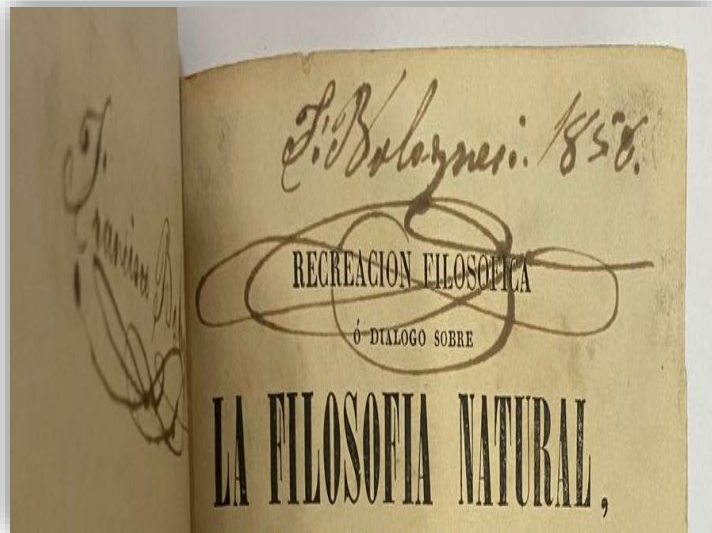 F.
Francisco B
F. Bolognesi. 1858.
RECREACION FILOSOFICA
Ó DIALOGO SOBRE
LA FILOSOFIA NATURAL,